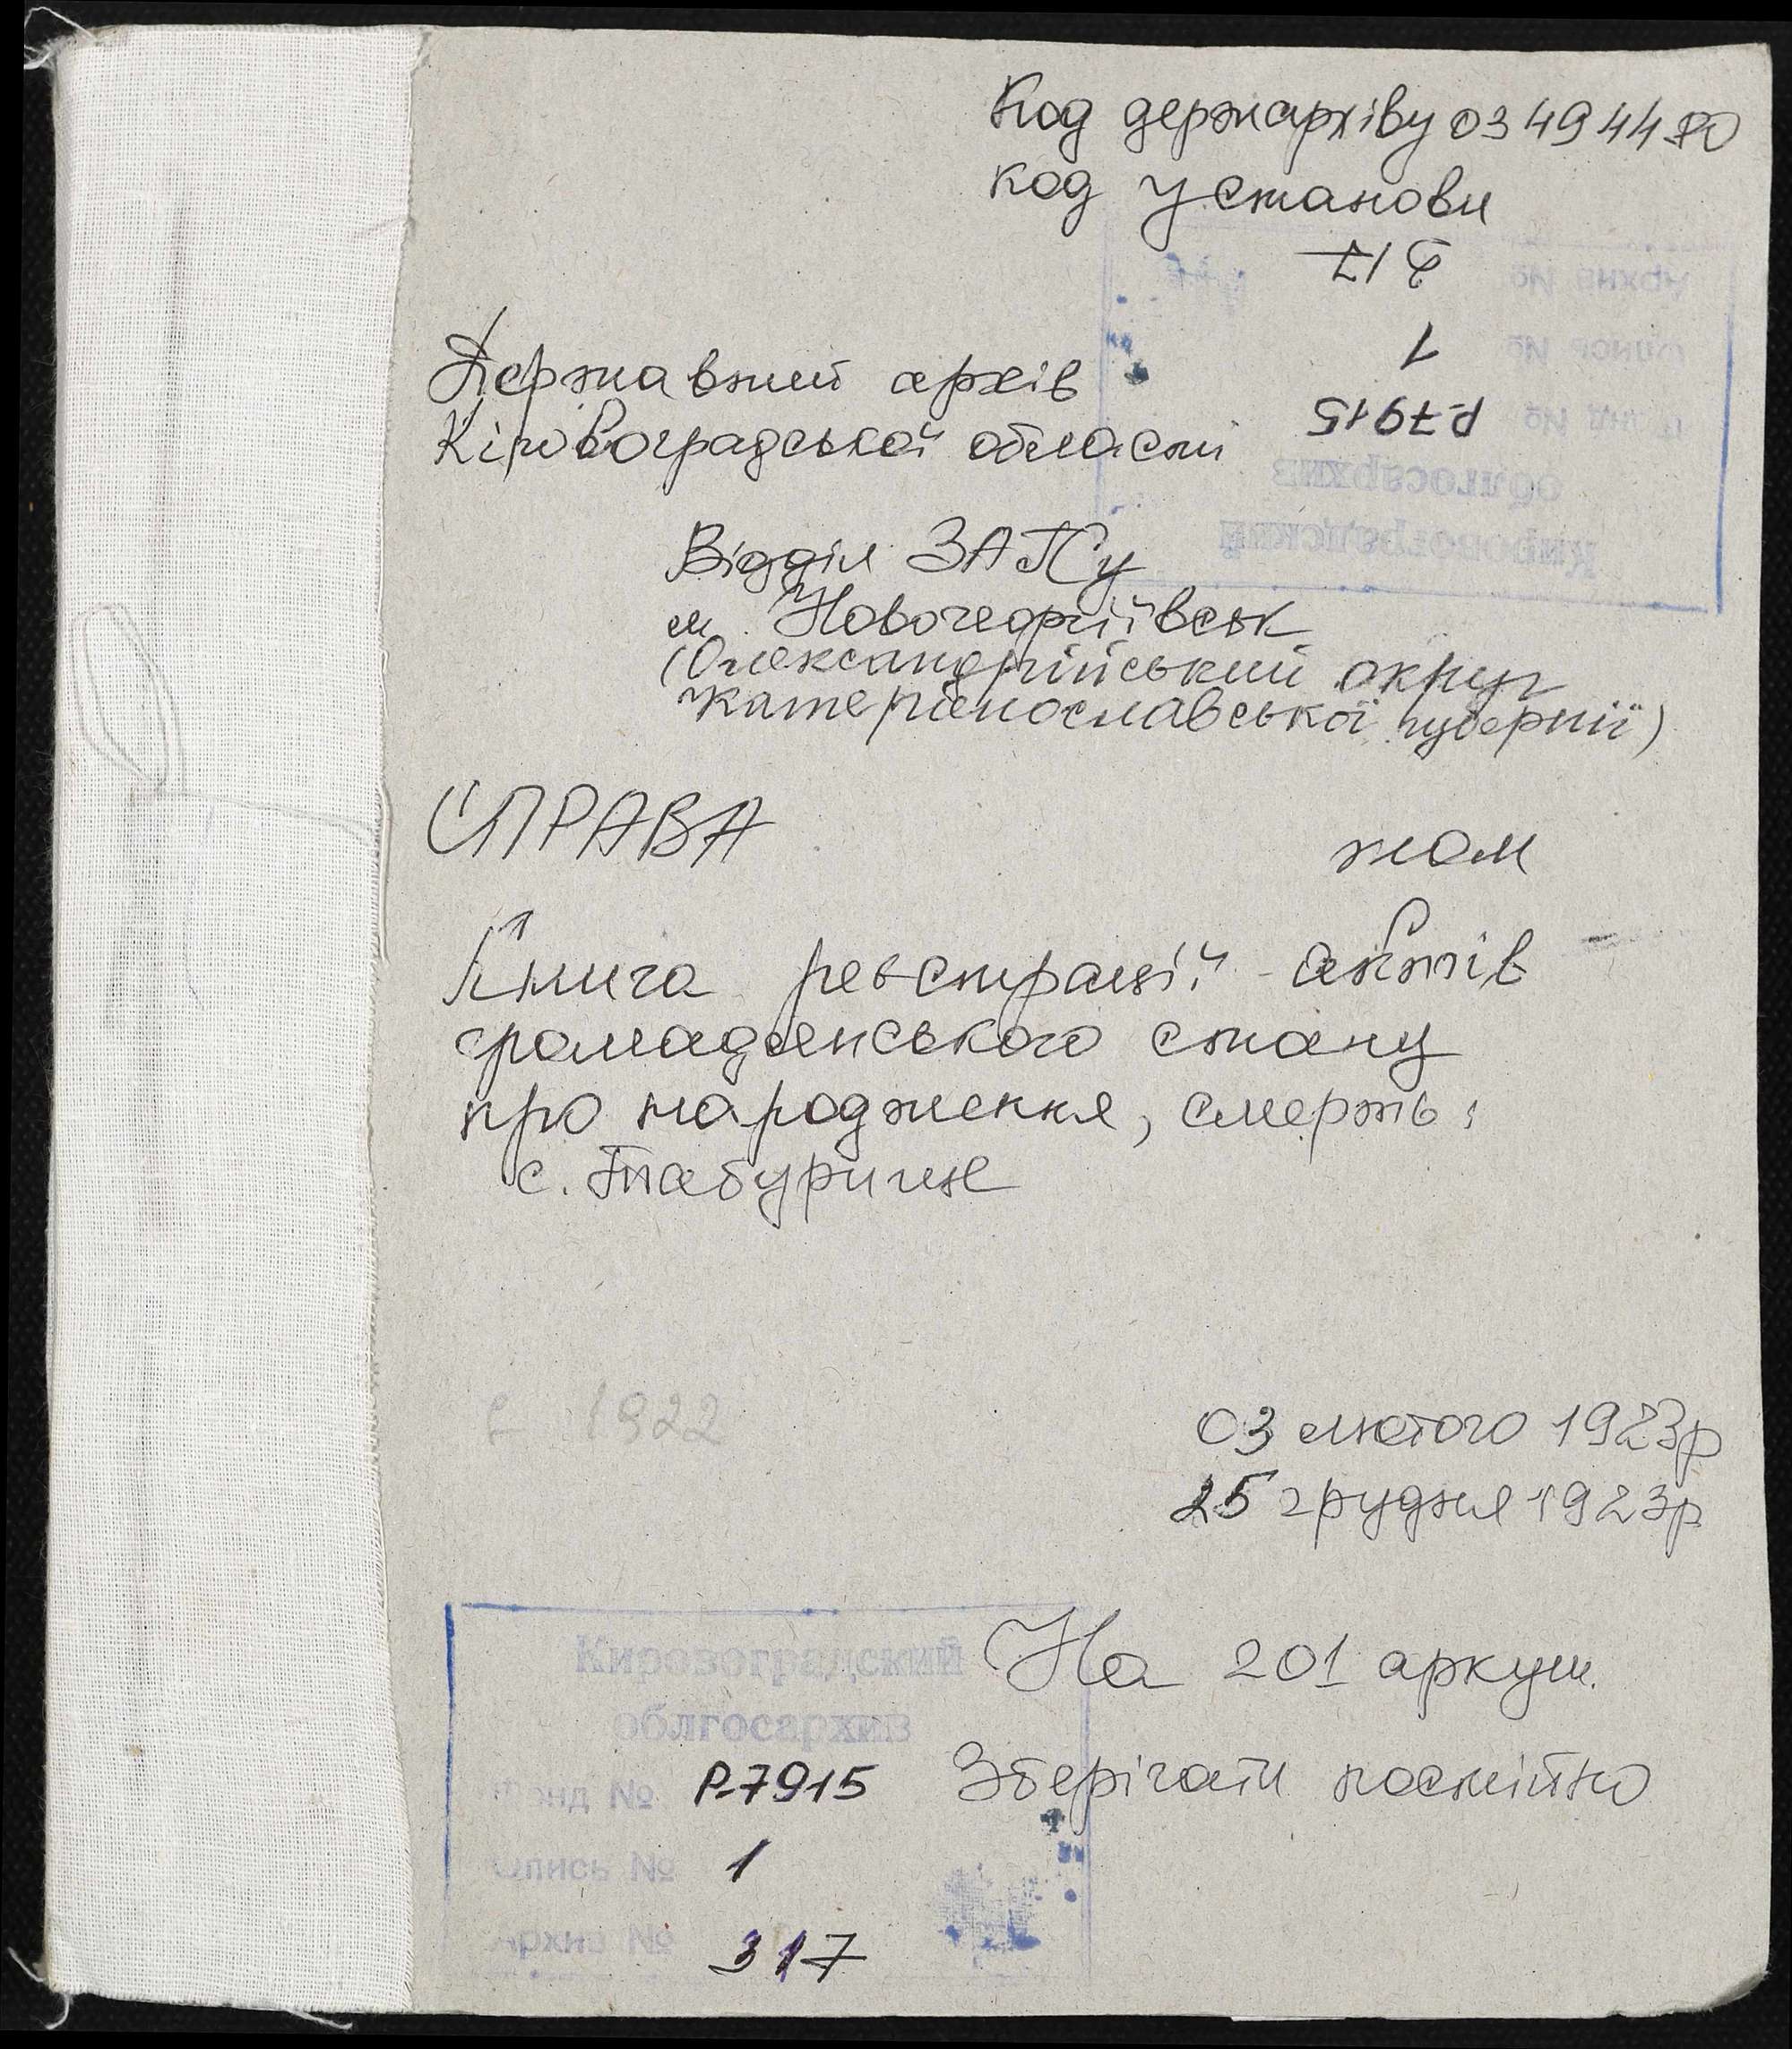 Код держархіву 03494480
код установи
217
1
Р-7915
Державний архів
Кіровоградської області
Відділ ЗАГСу
м. Новогеоргіївськ
(Олександрійський округ
Катеринославської губернії)
СПРАВА
том
Книга реєстрації актів
громадянського стану
про народження, смерть:
с. Табурище
1922
03 лютого 1923р
25 грудня 1923р
На 201 аркуш.
Зберігати постійно
Кировоградский
облгосархив
Фонд № Р-7915
Опись № 1
Архив № 317